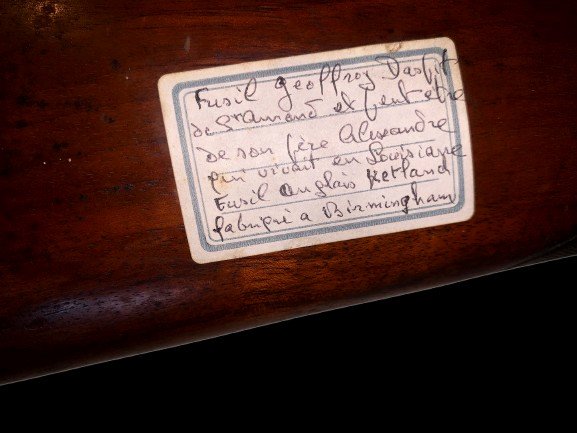 Fusil Geoffroy Dasfit
de Gramond et peut etre
de son père Alexandre
qui vivait en Louisiane
Fusil anglais Ketland
fabriqué a Birmingham